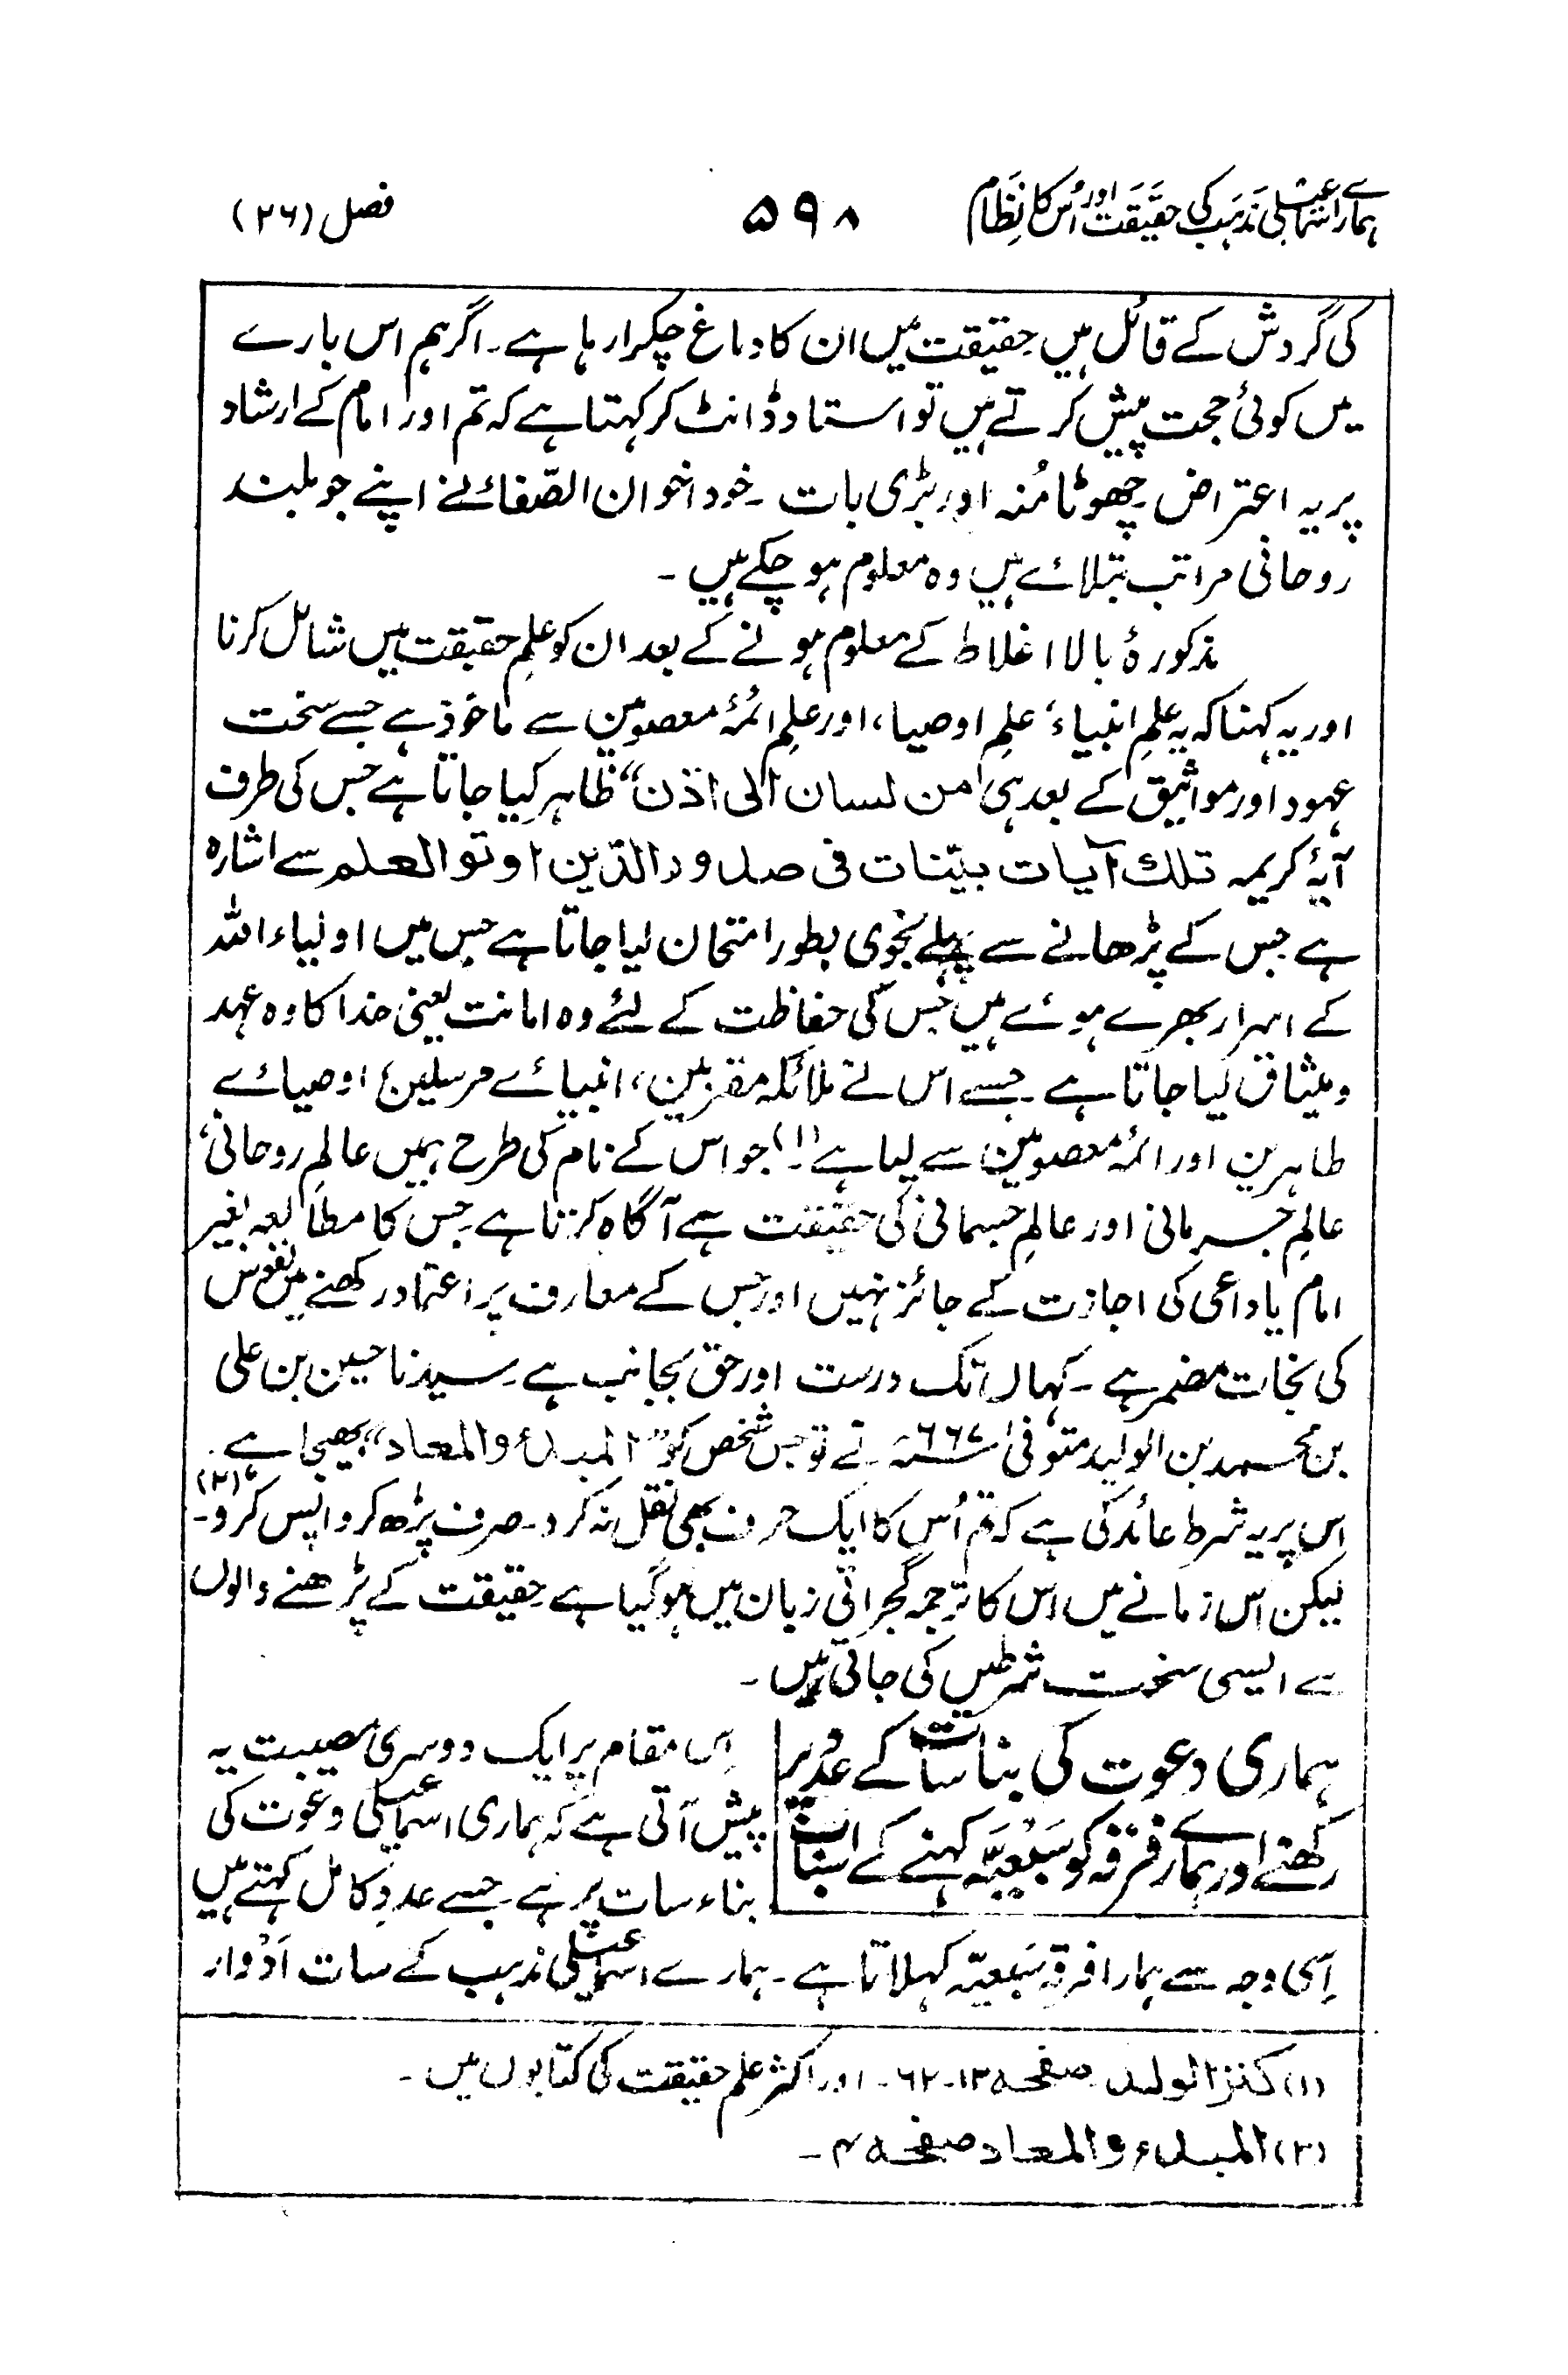 ہمارے اسماعیلی مذہب کی حقیقت اور اُس کا نظام ۵۹۸ فصل (۲۶)
کی گردش کے قائل ہیں حقیقت میں ان کا دماغ چکرا رہا ہے۔ اگر ہم اس بارے
میں کوئی حجت پیش کرتے ہیں تو استاد ڈانٹ کر کہتا ہے کہ تم اور امام کے ارشاد
پر یہ اعتراض چھوٹا مُنہ اور بڑی بات ۔ خود اخوان الصّفائے نے اپنے جو بلند
روحانی مراتب بتلائے ہیں وہ معلوم ہو چکے ہیں ۔
مذکورۂ بالا اغلاط کے معلوم ہونے کے بعد ان کو علمِ حقیقت میں شامل کرنا
اور یہ کہنا کہ یہ علمِ انبیاء، علمِ اوصیا، اور علمِ ائمۂ معصومین سے ماخوذ ہے جسے سخت
عہود اور مواثیق کے بعد ہی "من لسان الی اذن" ظاہر کیا جاتا ہے جس کی طرف
آیۂ کریمہ تلك آیات بیّنات فی صدور الذین اوتوا العلم سے اشارہ
ہے جس کے پڑھانے سے پہلے نجوی بطور امتحان لیا جاتا ہے جس میں اولیاء اللہ
کے اسرار بھرے ہوئے ہیں جس کی حفاظت کے لئے وہ امانت یعنی خدا کا وہ عہد
و میثاق لیا جاتا ہے جسے اس نے ملائکہ مقربین، انبیائے مرسلین، اوصیائے
طاہرین اور ائمۂ معصومین سے لیا ہے (۱)۔ جو اس کے نام کی طرح ہمیں عالمِ روحانی،
عالمِ جرمانی اور عالمِ جسمانی کی حقیقت سے آگاہ کرتا ہے جس کا مطالعہ بغیر
امام یا داعی کی اجازت کے جائز نہیں اور جس کے معارف پر اعتماد رکھنے میں نفوس
کی نجات مضمر ہے ۔ کہاں تک درست اور حق بجانب ہے ۔ سیدنا حسین بن علی
بن محمد بن الولید متوفیٰ ۶۶۷ھ نے تو جس شخص کو "المبدء والمعاد" بھیجا ہے
اس پر یہ شرط عائد کی ہے کہ تم اُس کا ایک حرف بھی نقل نہ کرو۔ صرف پڑھ کر واپس کرو۔ (۲)
لیکن اس زمانے میں اس کا ترجمہ گجراتی زبان میں ہو گیا ہے حقیقت کے پڑھنے والوں
سے ایسی سخت شرطیں کی جاتی ہیں ۔
ہماری دعوت کی بنا سات کے عدد پر
رکھنے اور ہمارے فرقہ کو سَبْعِیَّہ کہنے کے اسباب
اِس مقام پر ایک دوسری مصیبت یہ
پیش آتی ہے کہ ہماری اسماعیلی دعوت کی
بناء سات پر ہے جسے عددِ کامل کہتے ہیں
اِسی وجہ سے ہمارا فرقہ سَبعیّہ کہلاتا ہے ۔ ہمارے اسماعیلی مذہب کے سات اَدْوار
(۱) کنز الولد صفحہ ۱۳۵-۶۲۔ اور اکثر علم حقیقت کی کتابوں میں ۔
(۲) المبدء والمعاد صفحہ ۴۵ ۔